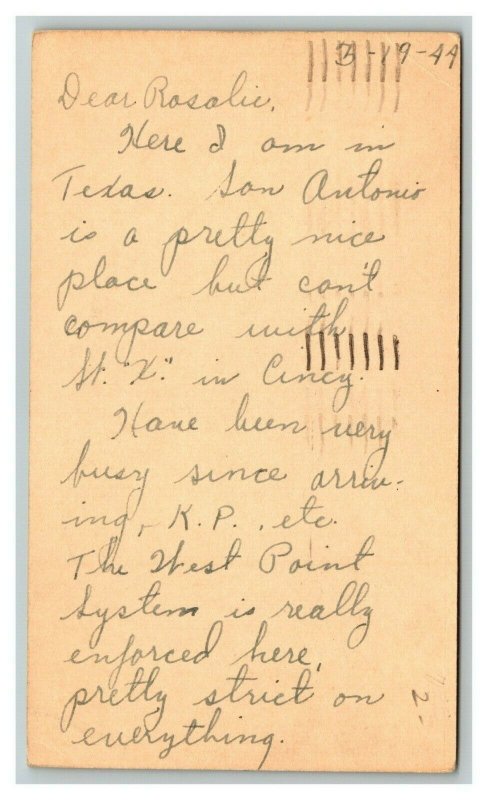 3-19-44
Dear Rosalie,
Here I am in
Texas. San Antonio
is a pretty nice
place but can't
compare with
St. "X." in Cincy.
Have been very
busy since arriv-
ing, K.P., etc.
The West Point
System is really
enforced here,
pretty strict on
everything.
2-